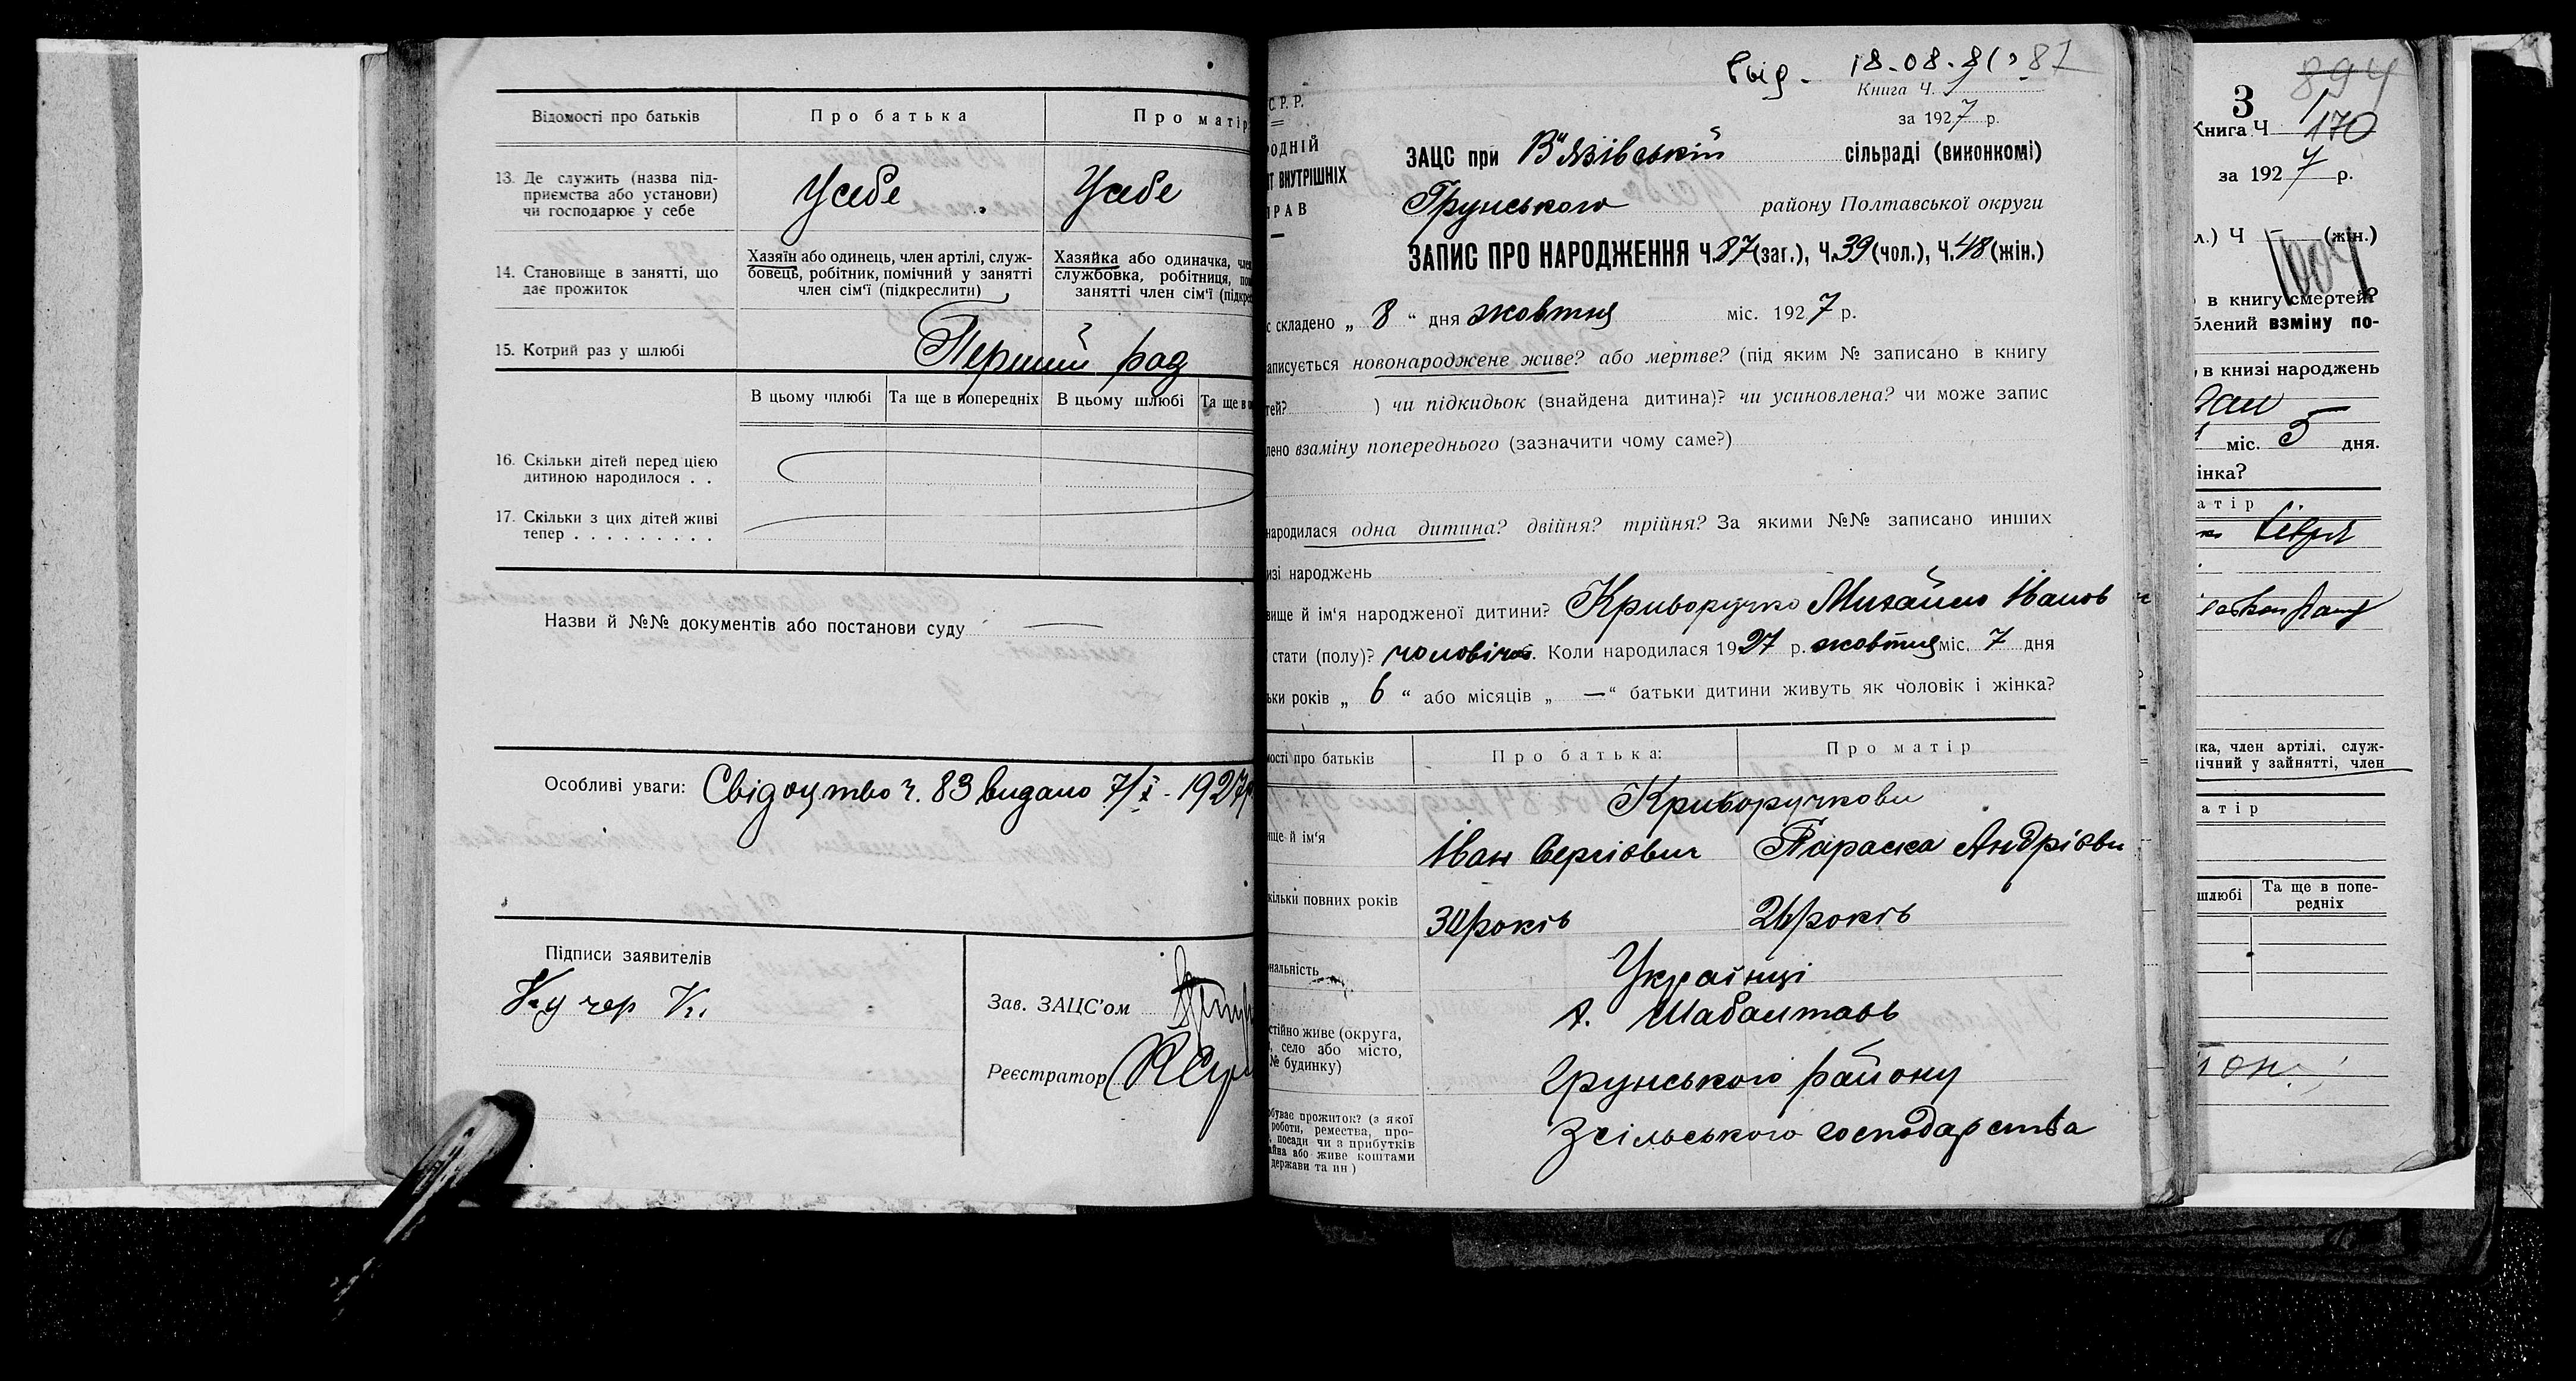 Відомості про батьків
Про батька
Про матір
13. Де служить (назва під-
приємства або установи)
чи господарює у себе
Усебе
Усебе
14. Становище в занятті, що
дає прожиток
Хазяїн або одинець, член артілі, служ-
бовець, робітник, помічний у занятті
член сім'ї (підкреслити)
Хазяйка або одиначка, член
службовка, робітниця,
занятті член сім'ї
15. Котрий раз у шлюбі
Перший раз
В цьому шлюбі
Та ще в попередніх
В цьому шлюбі
Та ще в
16. Скільки дітей перед цією
дитиною народилося . .
17. Скільки з цих дітей живі
тепер . . . . . . . . .
Назви й №№ документів або постанови суду —
Особливі уваги: Свідоцтво ч. 83 видано 7/X - 1927р
Підписи заявителів
Кучер К.
Зав. ЗАЦС'ом
Реєстратор
18-08-
Книга Ч. 1
за 1927 р.
С.Р.Р.
РОДНІЙ
Т ВНУТРІШНІХ
РАВ
ЗАЦС при В'язівській сільраді (виконкомі)
Грунського району Полтавської округи
ЗАПИС ПРО НАРОДЖЕННЯ Ч. 87 (заг.), Ч. 39 (чол.), Ч. 48 (жін.)
с складено „ 8 “ дня жовтня міс. 1927 р.
аписується новонароджене живе? або мертве? (під яким № записано в книгу
тей? ) чи підкидьок (знайдена дитина)? чи усиновлена? чи може запис
лено взаміну попереднього (зазначити чому саме?)
народилася одна дитина? двійня? трійня? За якими №№ записано инших
изі народжень
вище й ім'я народженої дитини? Криворучко Михайло Іванов
стати (полу)? чоловічої. Коли народилася 1927 р. жовтня міс. 7 дня
ьки років „ 6 “ або місяців „ — “ батьки дитини живуть як чоловік і жінка?
мості про батьків
Про батька:
Про матір
Криворучкови
ище й ім'я
Іван Сергієвич
Параска Андрієвн
кільки повних років
років
років
нальність
Українці
стійно живе (округа,
село або місто,
№ будинку)
х. Шабалтаєв
Грунського району
обуває прожиток? (з якої
роботи, ремества, про-
посади чи з прибутків
айна або живе коштами
держави та ин)
З сільського господарства
894
3
Книга Ч 1
170
за 1927 р.
л.) Ч — (жін.)
1004
в книгу смертей?
блений взміну по-
в книзі народжень
міс. 5 дня.
інка?
атір
ка, член артілі, служ-
ічний у зайнятті, член
атір
шлюбі
Та ще в попе-
редніх